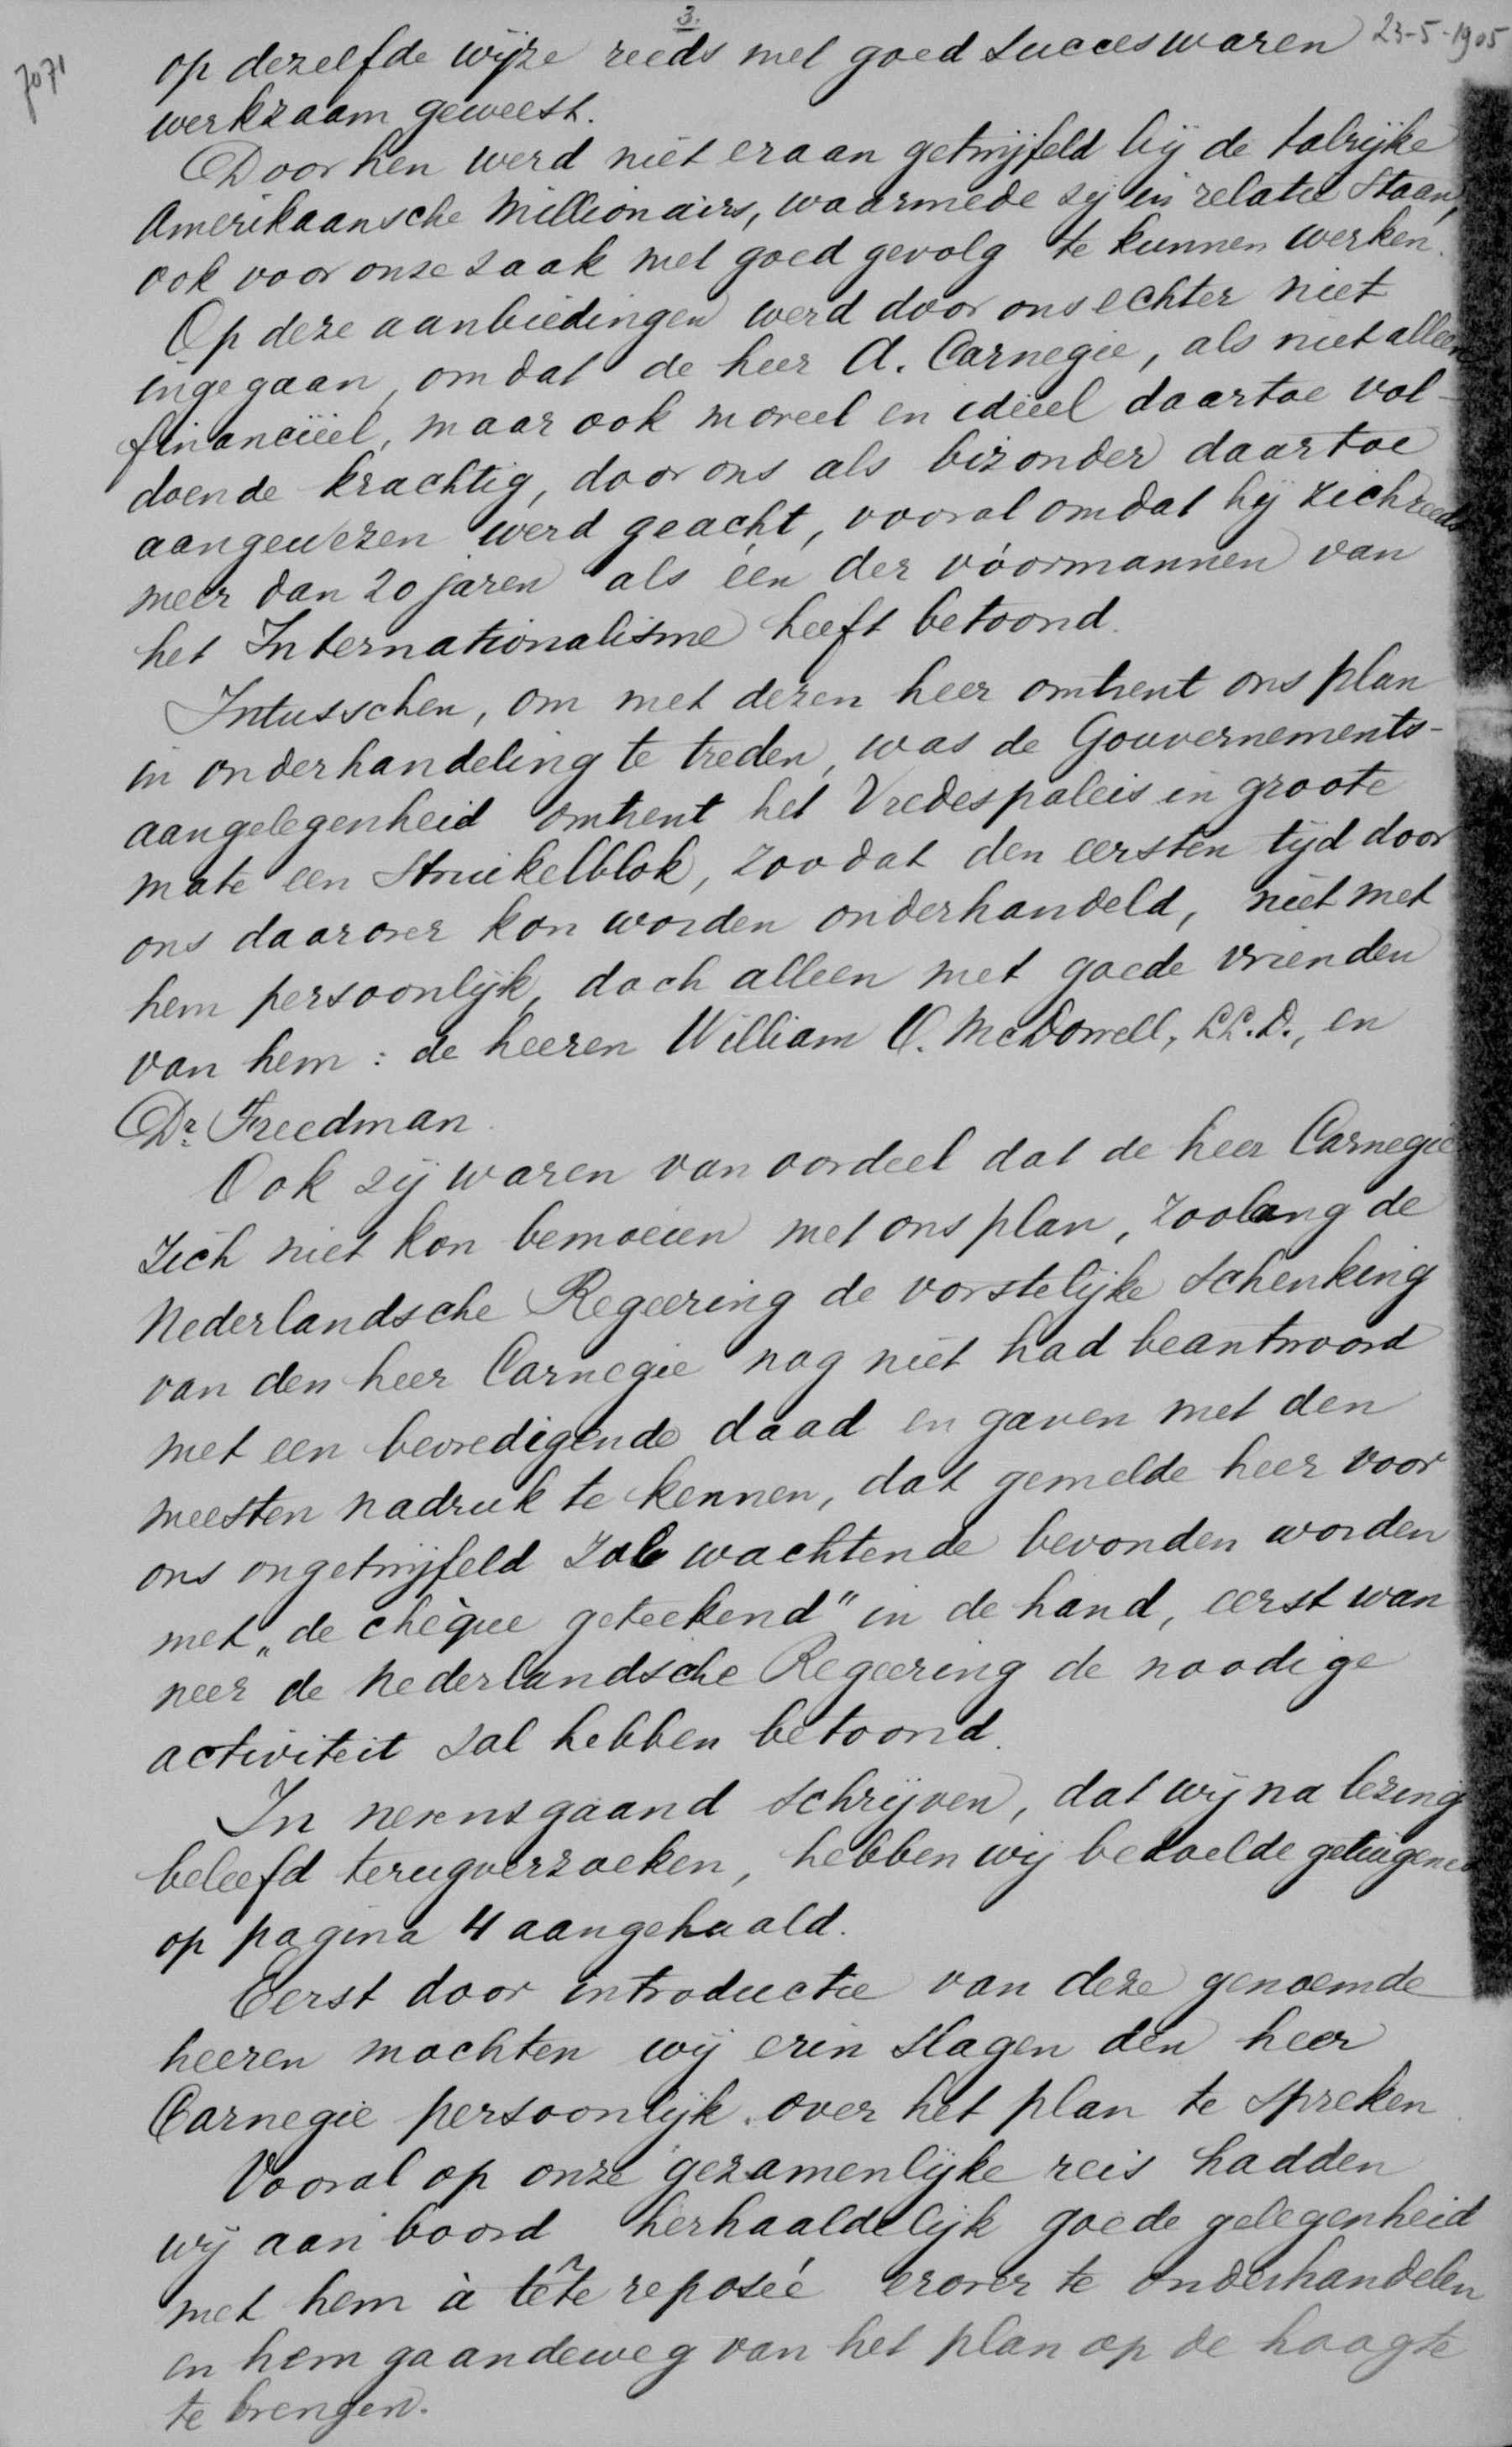 3.
23-5-1905
7071
op dezelfde wijze reeds met goed succes waren
werkzaam geweest.
Door hen werd niet eraan getwijfeld bij de talrijke
Amerikaansche Millionairs, waarmede zij in relatie staan,
ook voor onze zaak met goed gevolg te kunnen werken.
Op deze aanbiedingen werd door ons echter niet
ingegaan, omdat de heer A. Carnegie, als niet alleen
financiëel, maar ook moreel en idëeel daartoe vol-
doende krachtig, door ons als bizonder daartoe
aangewezen werd geacht, vooral omdat hij zich reeds
meer dan 20 jaren als één der vóórmannen van
het Internationalisme heeft betoond.
Intusschen, om met dezen heer omtrent ons plan
in onderhandeling te treden, was de Gouvernements-
aangelegenheid omtrent het Vredespaleis in groote
mate een struikelblok, zoodat den eersten tijd door
ons daarover kon worden onderhandeld, niet met
hem persoonlijk, doch alleen met goede vrienden
van hem: de heeren William O. McDowell, LL.D., en
Dr. Freedman.
Ook zij waren van oordeel dat de heer Carnegie
zich niet kon bemoeien met ons plan, zoolang de
Nederlandsche Regeering de vorstelijke schenking
van den heer Carnegie nog niet had beantwoord
met een bevredigende daad en gaven met den
meesten nadruk te kennen, dat gemelde heer voor
ons ongetwijfeld zal wachtende bevonden worden
met „de chèque geteekend" in de hand, eerst wan
neer de Nederlandsche Regeering de noodige
activiteit zal hebben betoond.
In nevensgaand schrijven, dat wij na lezing
beleefd terugverzoeken, hebben wij bedoelde getuigenis
op pagina 4 aangehaald.
Eerst door introductie van deze genoemde
heeren mochten wij erin slagen den heer
Carnegie persoonlijk over het plan te spreken.
Vooral op onze gezamenlijke reis hadden
wij aan boord herhaaldelijk goede gelegenheid
met hem à tête reposée erover te onderhandelen
en hem gaandeweg van het plan op de hoogte
te brengen.